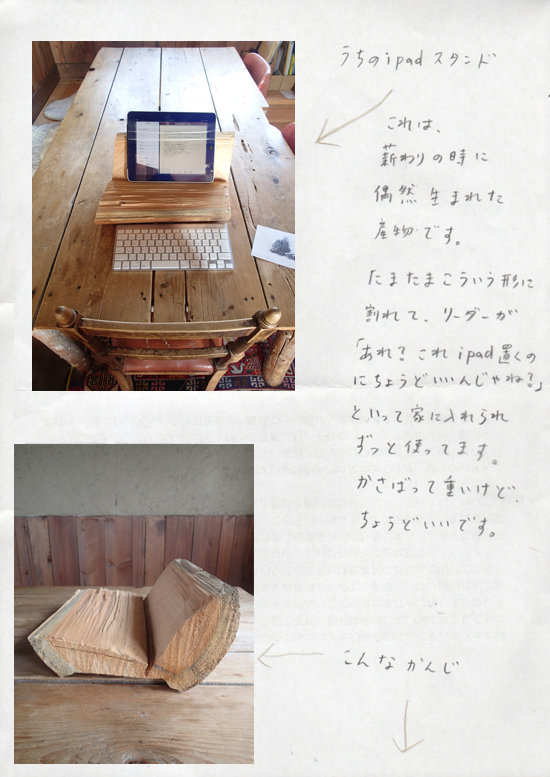 うちのipadスタンド
これは、
薪わりの時に
偶然生まれた
産物です。
たまたまこういう形に
割れて、リーダーが
「あれ?これipad置くの
にちょうどいいんじゃね?」
といって家に入れられ
ずっと使ってます。
かさばって重いけど、
ちょうどいいです。
こんなかんじ